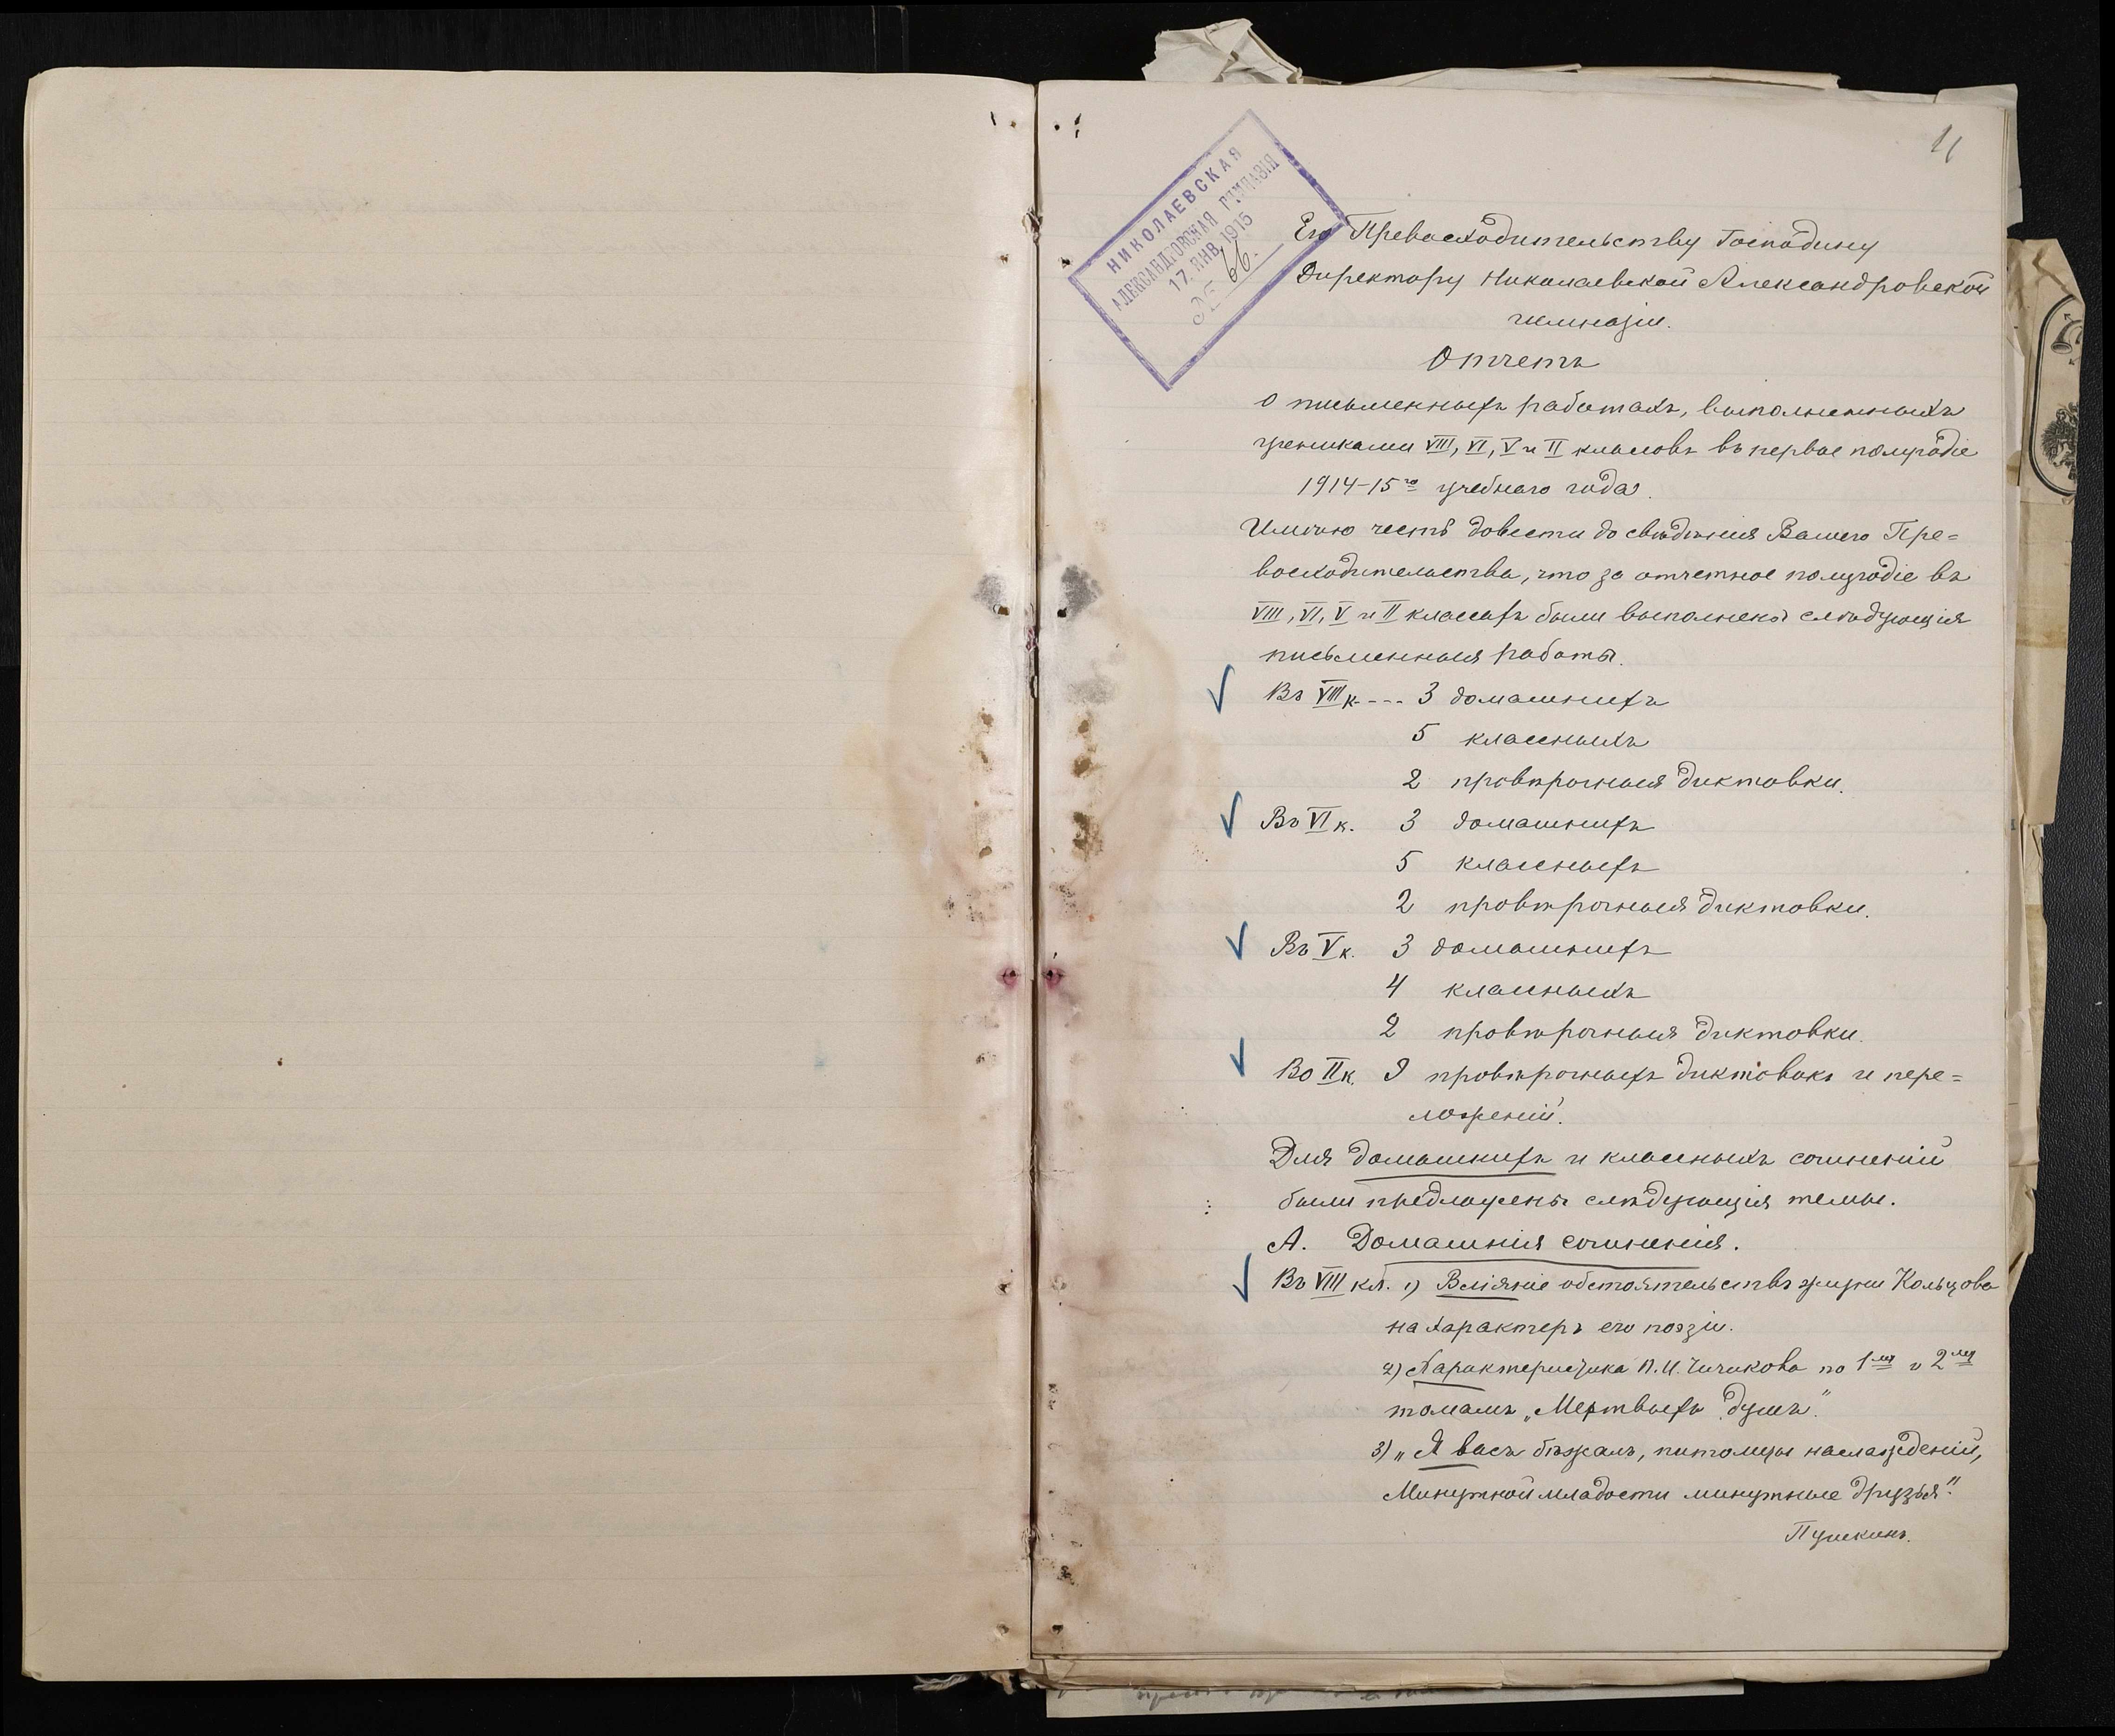 11
НИКОЛАЕВСКАЯ
АЛЕКСАНДРОВСКАЯ ГИМНАЗІЯ
17. ЯНВ. 1915
№ 66.
Его Превосходительству Господину
Директору Николаевской Александровской
гимназіи.
Отчетъ
о письменныхъ работахъ, выполненныхъ
учениками VIII, VI, V и II классовъ въ первое полугодіе
1914-15го учебнаго года.
Имѣю честь довести до свѣдѣнія Вашего Пре=
восходительства, что за отчетное полугодіе въ
VIII, VI, V и II классахъ были выполнены слѣдующія
письменныя работы.
Въ VIII к. --- 3 домашнихъ
5 классныхъ
2 провѣрочныя диктовки.
Въ VI к. 3 домашнихъ
5 классныхъ
2 провѣрочныя диктовки.
Въ V к. 3 домашнихъ
4 классныхъ
2 провѣрочныя диктовки.
Во II к. 9 провѣрочныхъ диктовокъ и пере=
ложеній.
Для домашнихъ и классныхъ сочиненій
были предложены слѣдующія темы.
А. Домашнія сочиненія.
Въ VIII кл. 1) Вліяніе обстоятельствъ жизни Кольцова
на характеръ его поэзіи.
2) Характеристика П. И. Чичикова по 1му и 2му
томамъ „Мертвыхъ душъ".
3) „Я васъ бѣжалъ, питомцы наслажденій,
Минутной младости минутные друзья".
Пушкинъ.